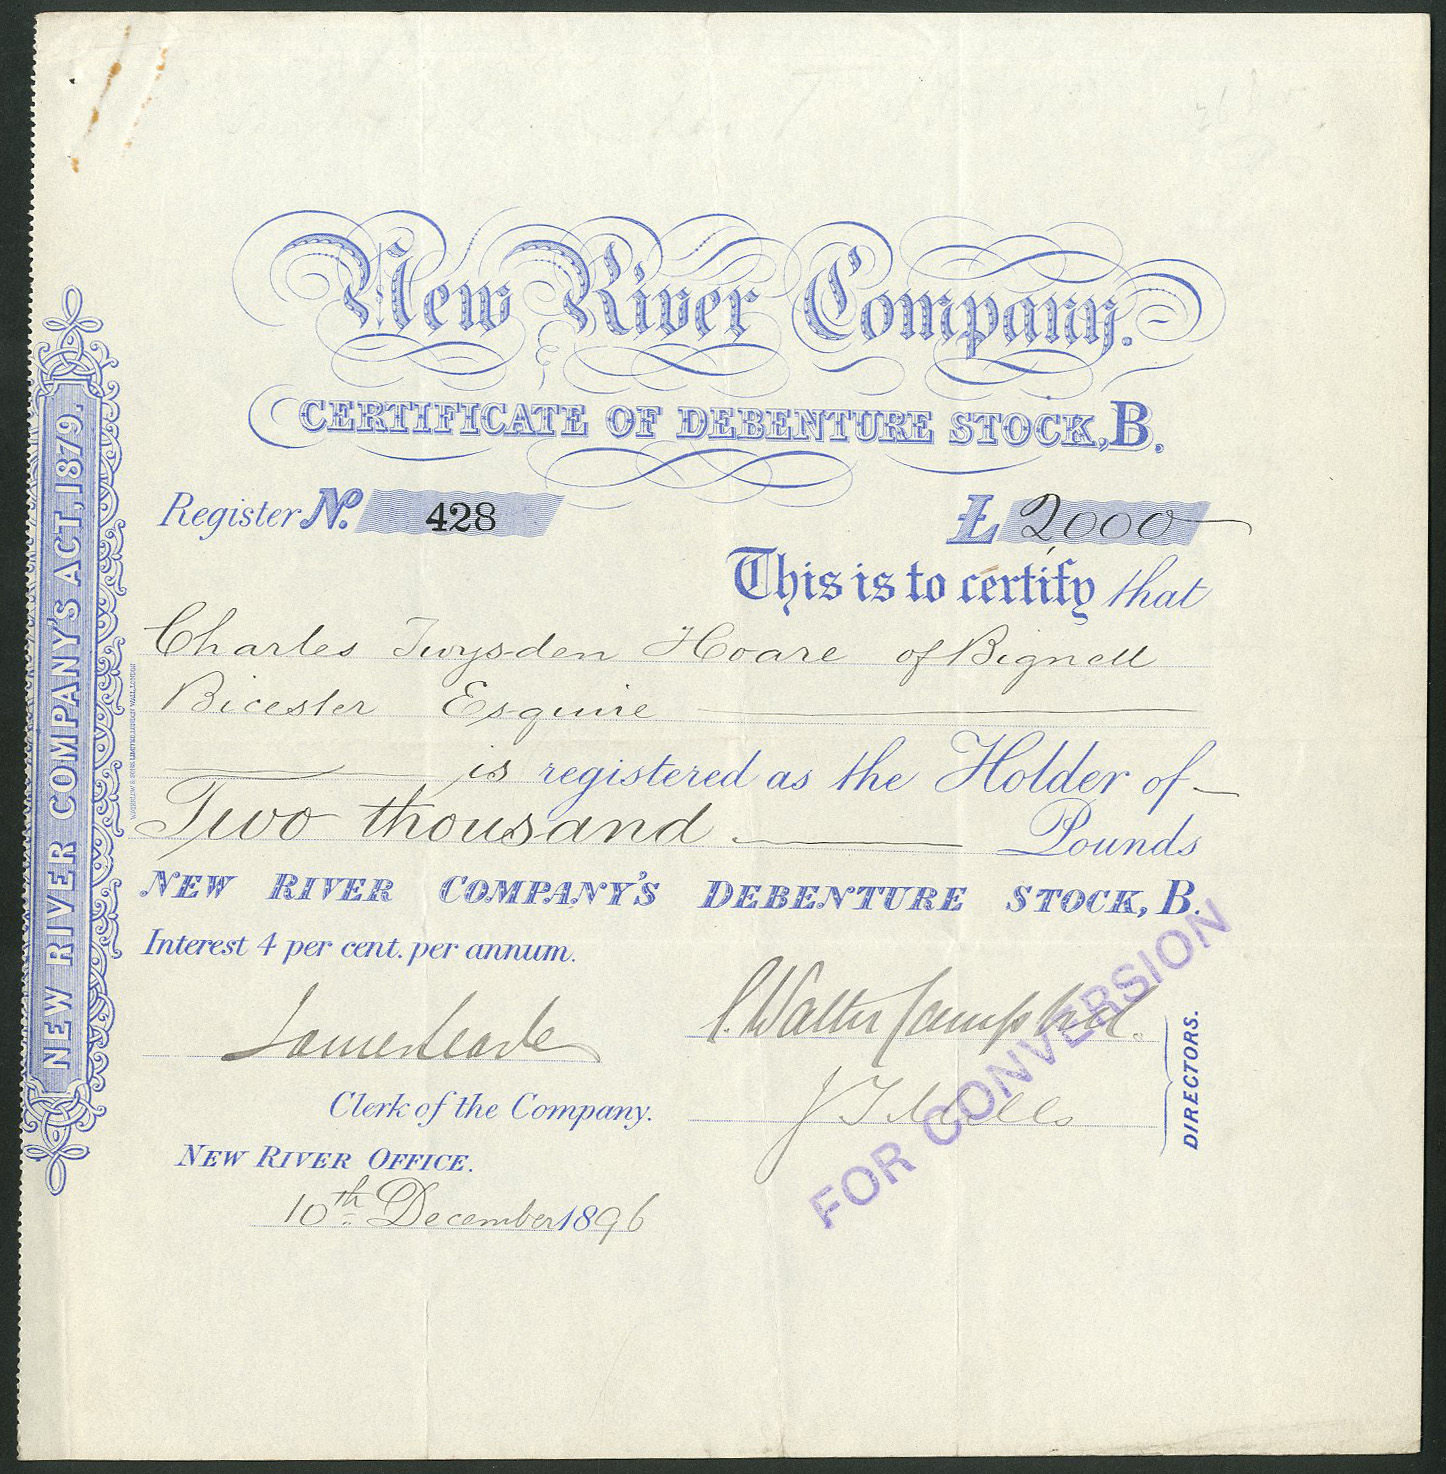 New River Company.
CERTIFICATE OF DEBENTURE STOCK, B.
Register No. 428
£ 2,000
This is to certify that
Charles Twysden Hoare of Bignell
Bicester Esquire
is registered as the Holder of
Two thousand Pounds
NEW RIVER COMPANY'S DEBENTURE STOCK, B.
Interest 4 per cent. per annum.
Walter Campbell.
Clerk of the Company.
DIRECTORS.
NEW RIVER OFFICE.
10th December 1896
FOR CONVERSION
NEW RIVER COMPANY'S ACT, 1879.
WATERLOW & SONS LIMITED, LONDON WALL, LONDON